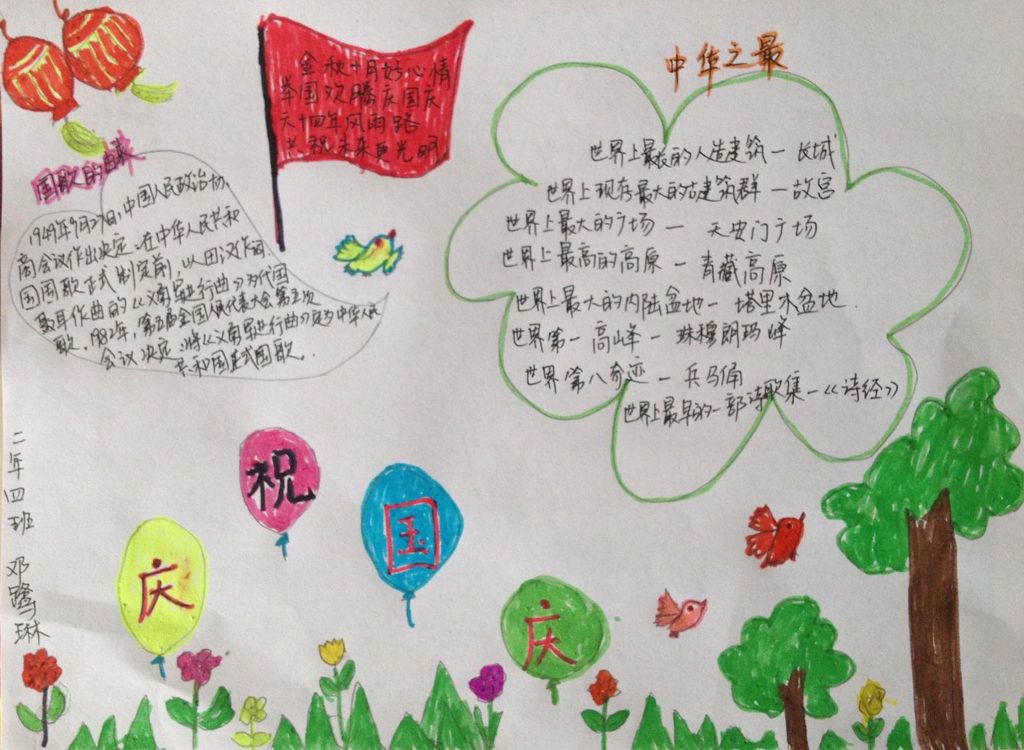 金秋十月好心情
举国欢腾庆国庆
六十四年风雨路
共祝未来更光明
中华之最
世界上最长的人造建筑一长城
世界上现存最大的古建筑群一故宫
世界上最大的广场一天安门广场
世界上最高的高原一青藏高原
世界上最大的内陆盆地一塔里木盆地.
世界第一高山峰一珠穆朗玛峰
世界第八奇迹一兵马俑
世界上最早的一部诗歌集一《诗经》
国歌的由来
1949年9月27日,中国人民政治协
商会议作出决定,在中华人民共和
国国歌正式制定前,以田汉作词
聂耳作曲的《义勇军进行曲》为代国
歌.1982年,第五届全国人民代表大会第五次
会议决定,将《义勇军进行曲》定为中华人民
共和国正式国歌.
庆
祝
国
庆
二年四班 邓鹭琳